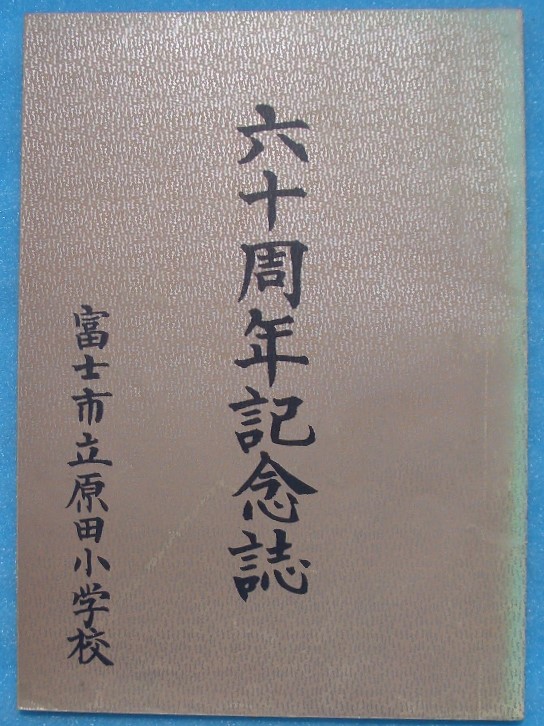 六十周年記念誌
富士市立原田小学校